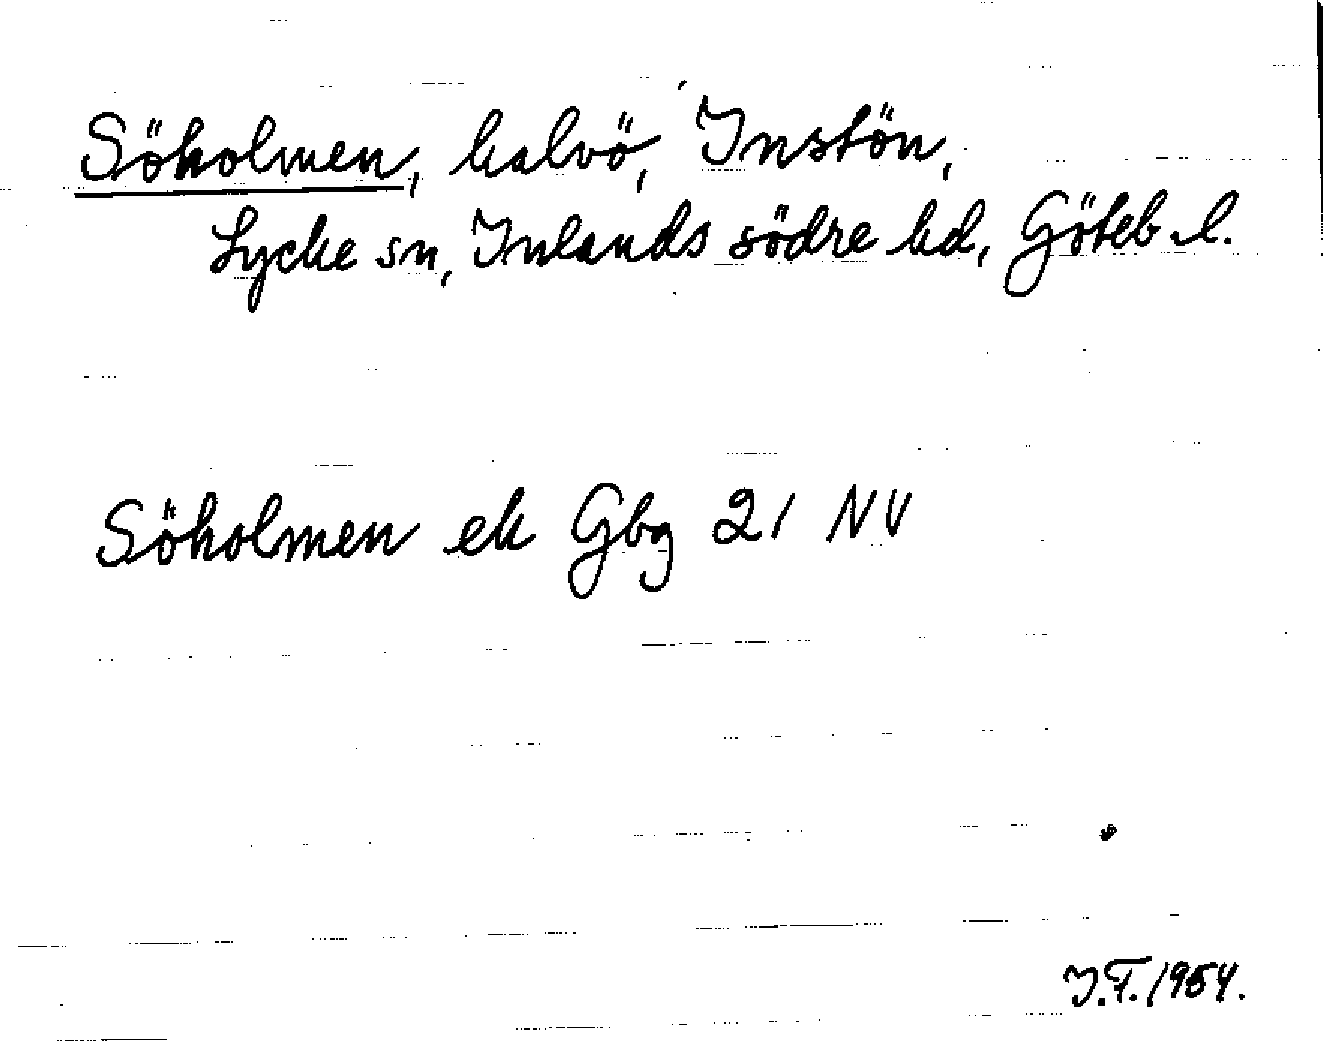 Söholmen, halvö, Instön,
Lycke sn, Inlands södre hd, Göteb. l.
Söholmen ek Gbg 21 NV
I.F. 1954.